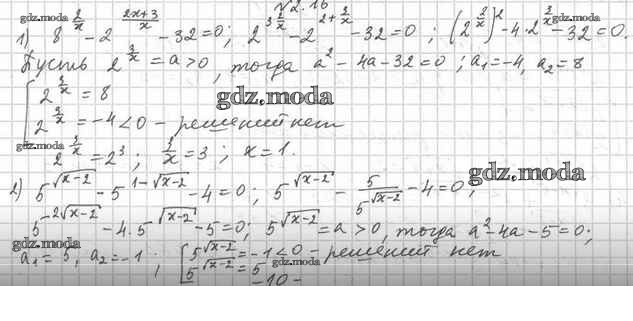 №2.16
1) 8^(2/x) - 2^((2x+3)/x) - 32 = 0; 2^(3·2/x) - 2^(2+3/x) - 32 = 0; (2^(3/x))² - 4·2^(3/x) - 32 = 0.
Пусть 2^(3/x) = a > 0, тогда a² - 4a - 32 = 0; a₁ = -4, a₂ = 8
[ 2^(3/x) = 8
gdz.moda
2^(3/x) = -4 < 0 - решений нет
gdz.moda
2^(3/x) = 2³; 3/x = 3; x = 1.
gdz.moda
2) 5^(√(x-2)) - 5^(1-√(x-2)) - 4 = 0; 5^(√(x-2)) - 5/5^(√(x-2)) - 4 = 0;
5^(2√(x-2)) - 4·5^(√(x-2)) - 5 = 0; 5^(√(x-2)) = a > 0, тогда a² - 4a - 5 = 0;
gdz.moda
a₁ = 5, a₂ = -1; [ 5^(√(x-2)) = -1 < 0 - решений нет
5^(√(x-2)) = 5
gdz.moda